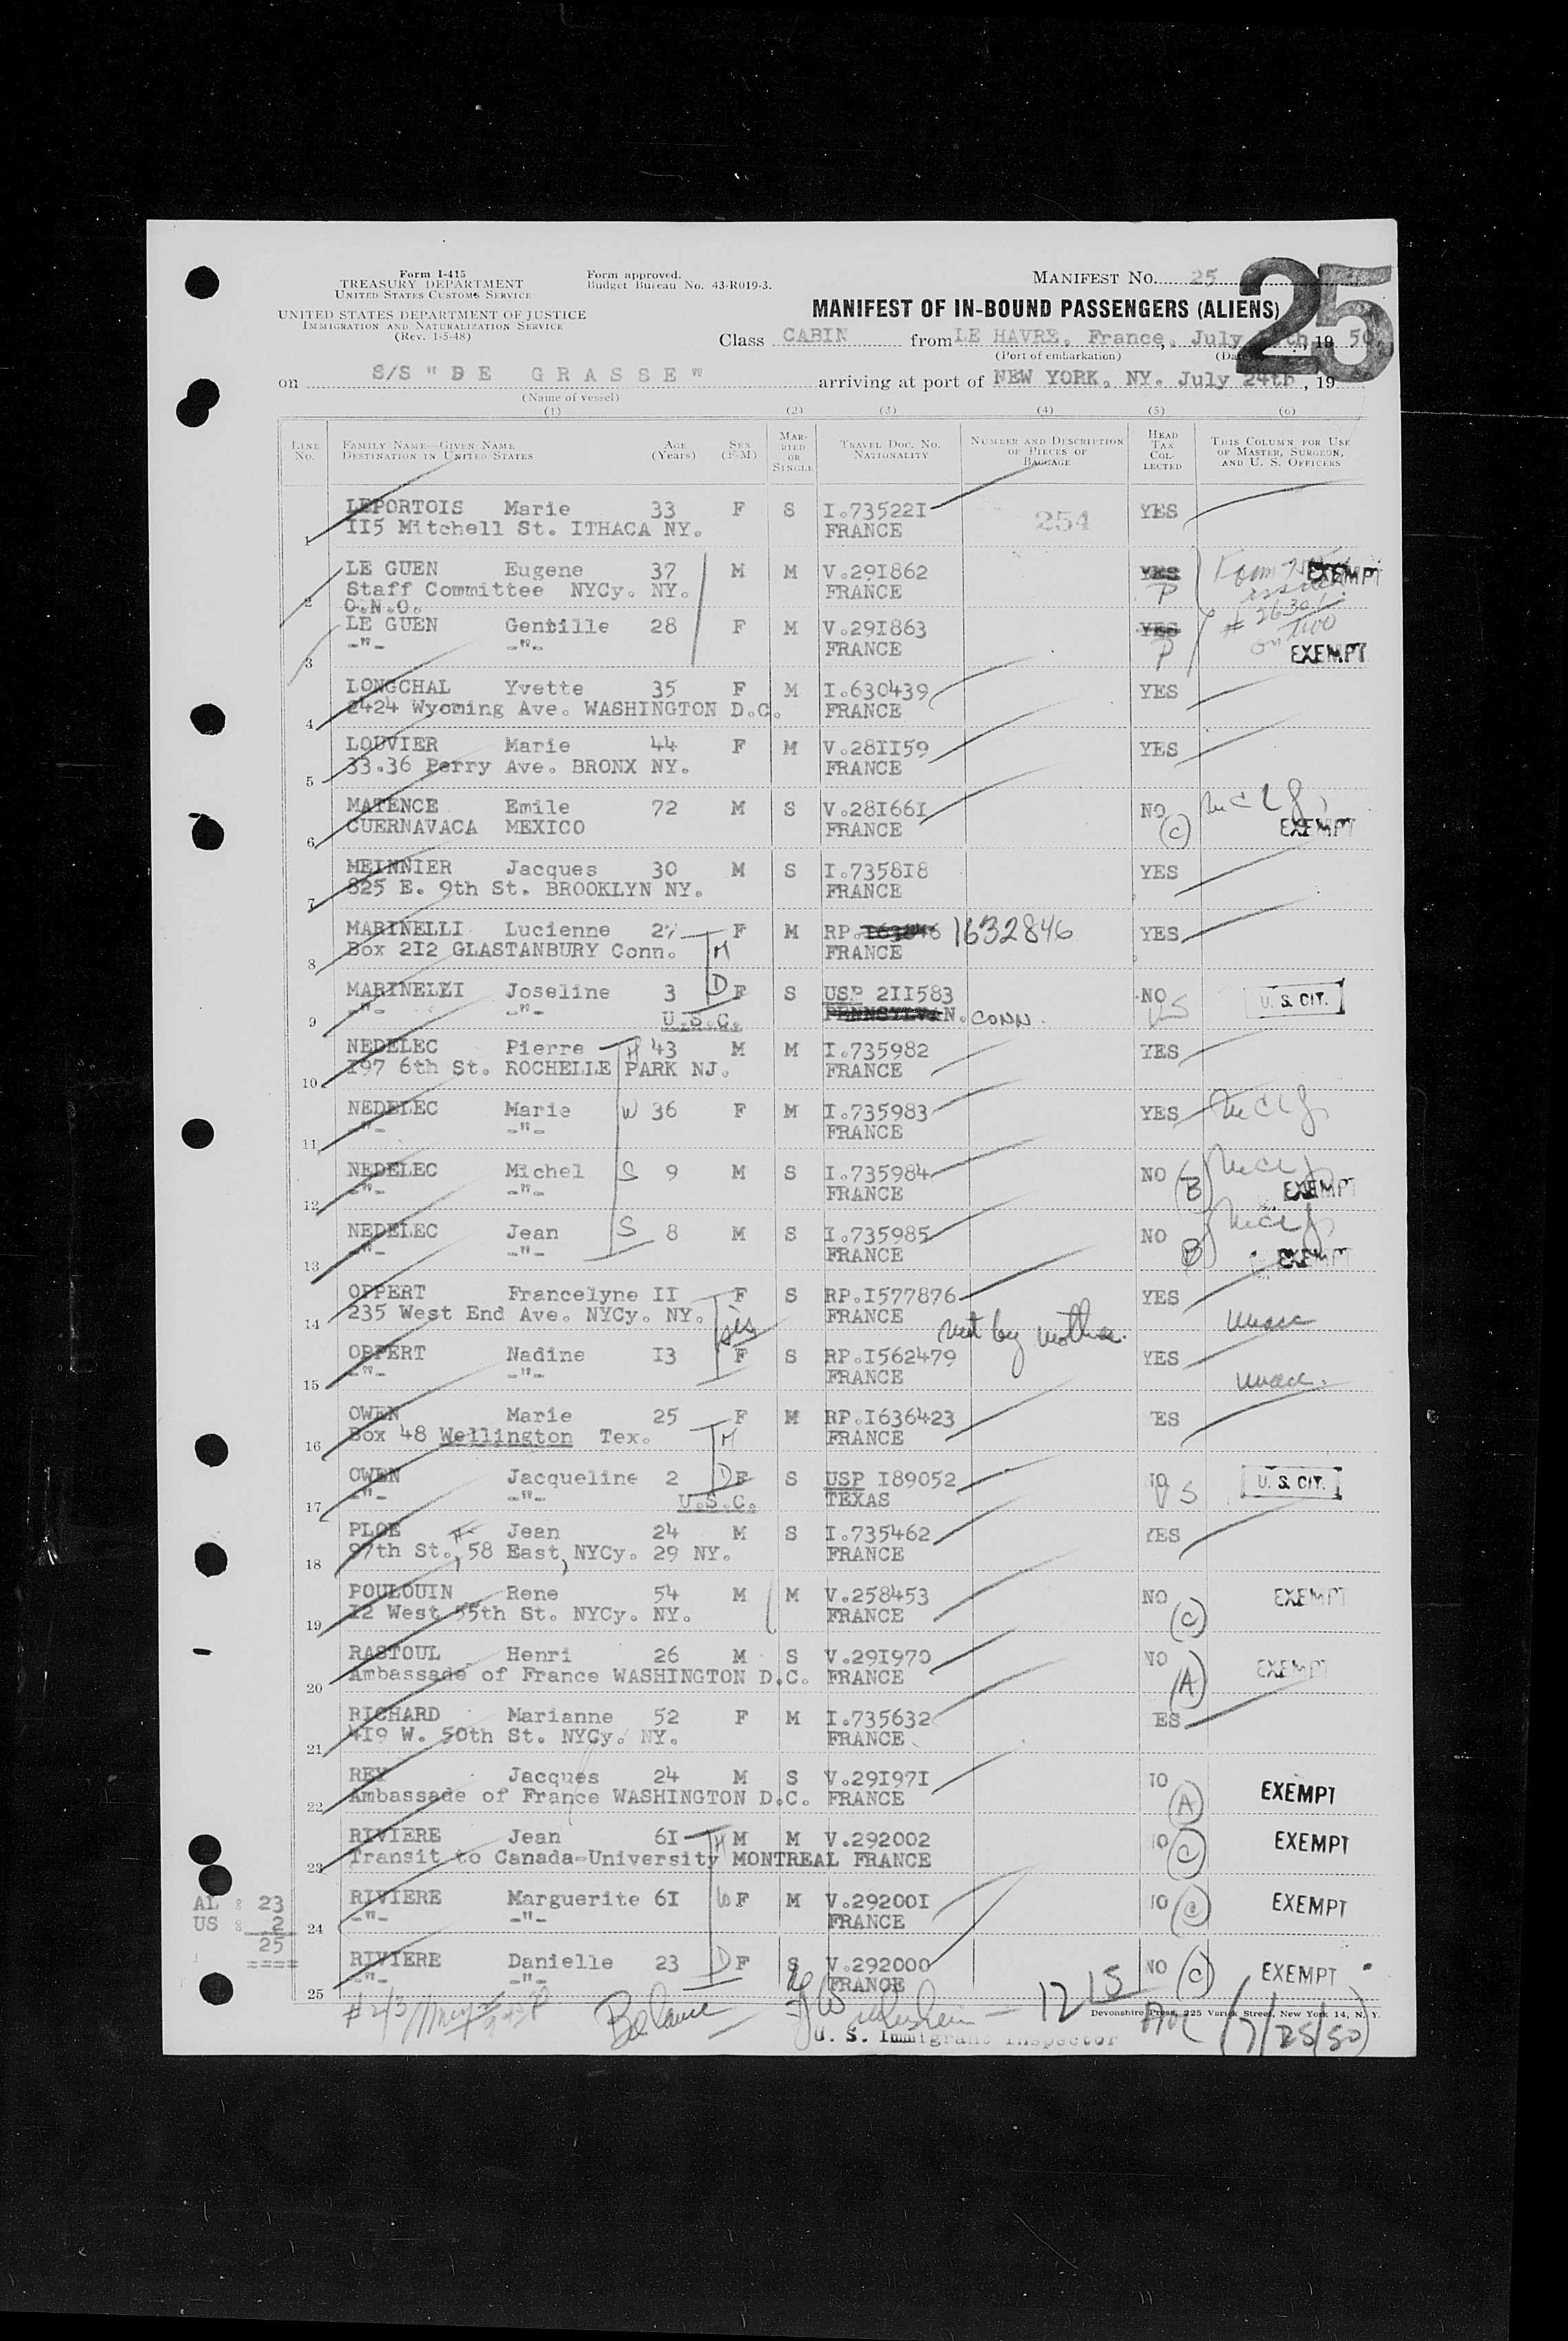 Form I-415
TREASURY DEPARTMENT
UNITED STATES CUSTOMS SERVICE
UNITED STATES DEPARTMENT OF JUSTICE
IMMIGRATION AND NATURALIZATION SERVICE
(Rev. 1-5-48)
Form approved.
Budget Bureau No. 43-R019-3.
MANIFEST No. 25
25
MANIFEST OF IN-BOUND PASSENGERS (ALIENS)
Class CABIN from LE HAVRE, France, July , 19 50
(Port of embarkation) (Date)
on S/S "DE GRASSE" arriving at port of NEW YORK, NY. July 24th, 19
(Name of vessel)
(1) (2) (3) (4) (5) (6)
LINE No. FAMILY NAME—GIVEN NAME DESTINATION IN UNITED STATES AGE (Years) SEX (F-M) MARRIED OR SINGLE TRAVEL DOC. NO. NATIONALITY NUMBER AND DESCRIPTION OF PIECES OF BAGGAGE HEAD TAX COLLECTED THIS COLUMN FOR USE OF MASTER, SURGEON, AND U. S. OFFICERS
LEPORTOIS Marie 33 F S I.735221 254 YES
1 115 Mitchell St. ITHACA NY. FRANCE
LE GUEN Eugene 37 M M V.291862 YES EXEMPT
Staff Committee NYCy. NY. FRANCE P
2 O.N.O.
LE GUEN Gentille 28 F M V.291863 YES on two
3 -"- -"- FRANCE P EXEMPT
LONGCHAL Yvette 35 F M I.630439 YES
4 2424 Wyoming Ave. WASHINGTON D.C. FRANCE
LOUVIER Marie 44 F M V.281159 YES
5 33.36 Perry Ave. BRONX NY. FRANCE
MATENCE Emile 72 M S V.281661 NO
6 CUERNAVACA MEXICO FRANCE (C) EXEMPT
MEINNIER Jacques 30 M S I.735818 YES
7 825 E. 9th St. BROOKLYN NY. FRANCE
MARINELLI Lucienne 27 F M RP.163846 1632846 YES
8 Box 212 GLASTANBURY Conn. M FRANCE
MARINELLI Joseline 3 D F S USP 211583 NO U. S. CIT.
9 -"- -"- U.S.C. PENNSYLVAN. CONN. US
NEDELEC Pierre H 43 M M I.735982 YES
10 197 6th St. ROCHELLE PARK NJ. FRANCE
NEDELEC Marie W 36 F M I.735983 YES
11 -"- -"- FRANCE
NEDELEC Michel S 9 M S I.735984 NO
12 -"- -"- FRANCE (B) EXEMPT
NEDELEC Jean S 8 M S I.735985 NO
13 -"- -"- FRANCE (B) EXEMPT
OPPERT Francelyne 11 F S RP.1577876 YES
14 235 West End Ave. NYCy. NY. sis FRANCE met by mother. unacc
OPPERT Nadine 13 F S RP.1562479 YES
15 -"- -"- FRANCE unacc.
OWEN Marie 25 F M RP.1636423 YES
16 Box 48 Wellington Tex. M FRANCE
OWEN Jacqueline 2 D F S USP 189052 NO U. S. CIT.
17 -"- -"- U.S.C. TEXAS US
PLOE Jean 24 M S I.735462 YES
18 97th St., 58 East, NYCy. 29 NY. FRANCE
POULOUIN Rene 54 M M V.258453 NO EXEMPT
19 12 West 55th St. NYCy. NY. FRANCE (C)
RASTOUL Henri 26 M S V.291970 NO EXEMPT
20 Ambassade of France WASHINGTON D.C. FRANCE (A)
RICHARD Marianne 52 F M I.735632 YES
21 419 W. 50th St. NYCy. NY. FRANCE
REY Jacques 24 M S V.291971 NO EXEMPT
22 Ambassade of France WASHINGTON D.C. FRANCE (A)
RIVIERE Jean 61 H M M V.292002 NO (C) EXEMPT
23 Transit to Canada-University MONTREAL FRANCE
RIVIERE Marguerite 61 W F M V.292001 NO (C) EXEMPT
24 -"- -"- FRANCE
RIVIERE Danielle 23 D F S V.292000 NO (C) EXEMPT
25 -"- -"- FRANCE
AL : 23
US : 2
25
====
Balance 1215
Devonshire Press, 225 Varick Street, New York 14, N. Y.
U. S. Immigrant Inspector (7/25/50)